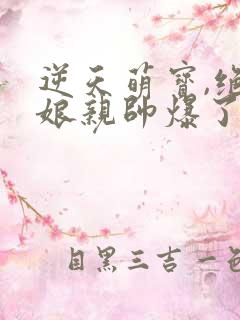 逆天萌寶,絕
娘親帥爆了
自黑三吉一色